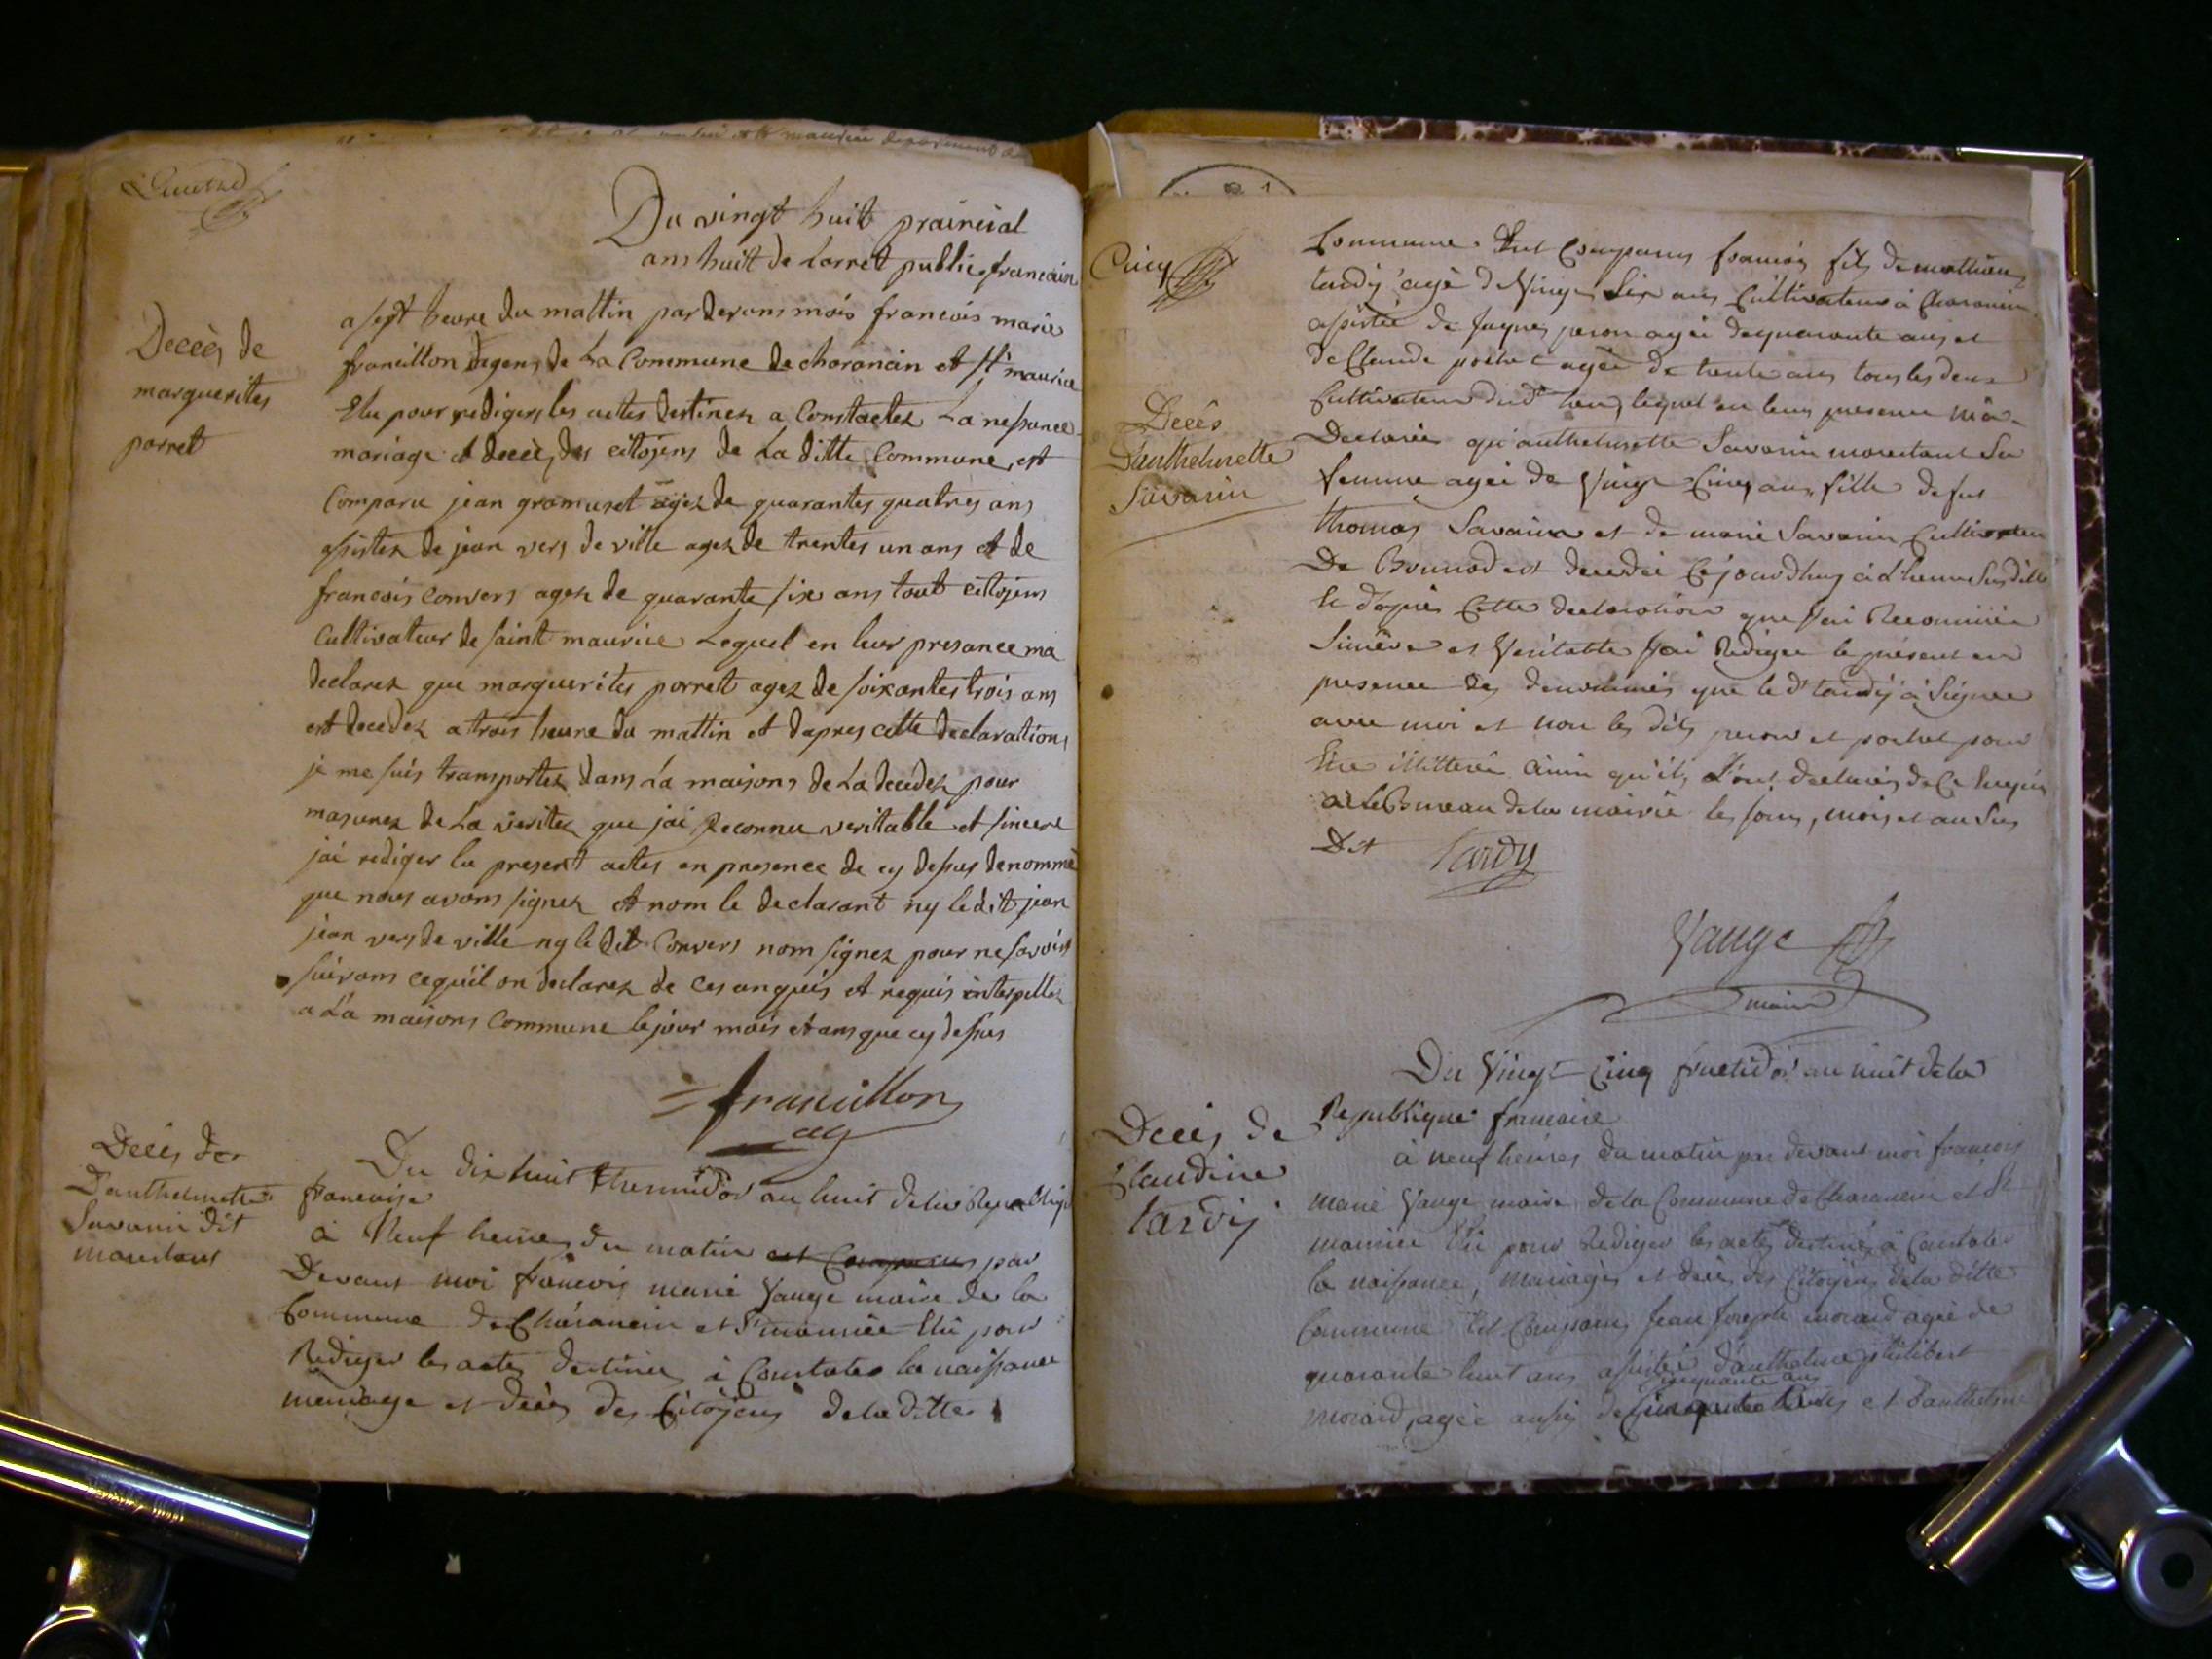 Du vingt huit prairial
ans huit de Larret public francain
Decès de
marguerites
porret
a sept heure du mattin par devans mois francois marie
francillon agens de La Commune de charancin et st maurice
Elu pour rediger les actes destinez a Constactez La nessance
mariage et decès des citojens de La ditte Commune, est
Comparu jean gramuset agez de quarantes quatres ans
assistez de jean vers de ville agez de trentes un ans et de
francois convers agez de quarante six ans tout citojens
Cultivateur de saint maurice Lequel en leur presance ma
declarez que marguerites porrett agez de soixantes trois ans
est decedez a trois heure du mattin et dapres cette declarations
je me suis transportez dans La maisons de La decédez pour
masurez de La veritez que jai Reconnu veritable et sincere
jai rediger lu present actes en presence de cy dessus denommé
que nous avons signez et nom le declarant ny le dit jean
jean vers de ville ny le dit Convers nom signez pour ne savoirs
suivans cequil on declarez de ces anquis et requis interpellez
a La maisons Commune le jour mois et ans que cy dessus
francillon
ag
Decès de
Danthelmette
Savarin dit
moustant
Du dix huit thermidor an huit de la Republique
francaise
à Neuf heures du matin est Comparus par
Devant moi francois marie Vauge maire de la
Commune de Charancin et St maurice Elu pour
Rediger les actes destinés à Constater la naissance
mariage et decès des Citojens de la ditte
Cinq
Commune. Est Comparus francois fils de mathieu
tardy agé de Vingt Six ans Cultivateur à Charancin
assistée de Jaques peron agée de quarante ans et
de Claude pochet agée de trente ans tous les deux
Cultivateur dud. lieu, lequel en leur presence m'a
Decès
D'anthelmette
Savarin
Declarée qu'anthelmette Savarin moustant Sa
femme agée de Vingt Cinq ans, fille de fut
thomas Savarin et de marie Savarin Cultivateur
De Brunod est decedée Cejourdhuy à d. heure susditte
Et d'après Cette declaration que J'ai Reconnüe
Sincère et Véritable J'ai Rediger le présent en
presence des denommés que led. tardy à Signée
avec moi et non les dits peron et pochet pour
être illitterée ainsi qu'ils L'ont declarés de Ce Enquis
au Bureau de la mairie les jour, mois et an Sus
Dit
Tardy
Vauge
maire
Du Vingt Cinq fructidor an huit de la
Republique francaise
Decès de
Claudine
tardy
à neuf heures du matin par devant moi francois
marie Vauge maire de la Commune de Charancin et St
maurice Elu pour Rediger les actes destinés à Constater
la naissance, mariages et decès des Citoyens de la ditte
Commune Est Comparus Jean Joseph morard agée de
quarante huit ans assistée d'anthelme philibert
cinquante ans
morard, agée aussi de et d'anthelme